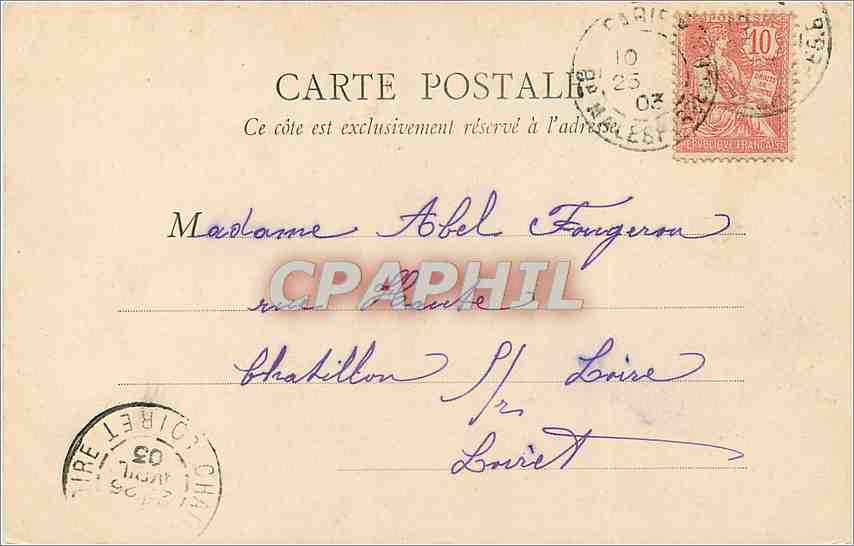 CARTE POSTALE
Ce côte est exclusivement réservé à l'adresse
Madame Abel Fougerou
rue Haute
Chatillon s/r Loire
Loiret
CPAPHIL
PARIS
10
25
03
Bd MALESHERBES
POSTES
10
DROITS DE
REPUBLIQUE FRANÇAISE
LOIRET
26
AVRIL
03